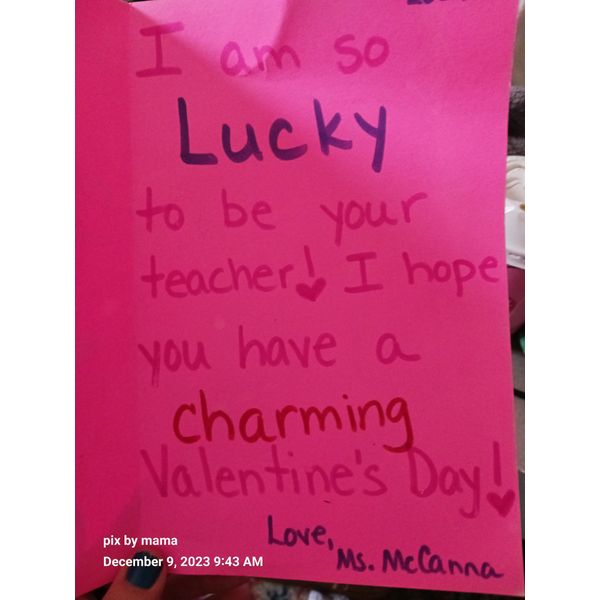 I am so
Lucky
to be your
teacher! I hope
you have a
charming
Valentine's Day!
Love,
Ms. McCanna
pix by mama
December 9, 2023 9:43 AM